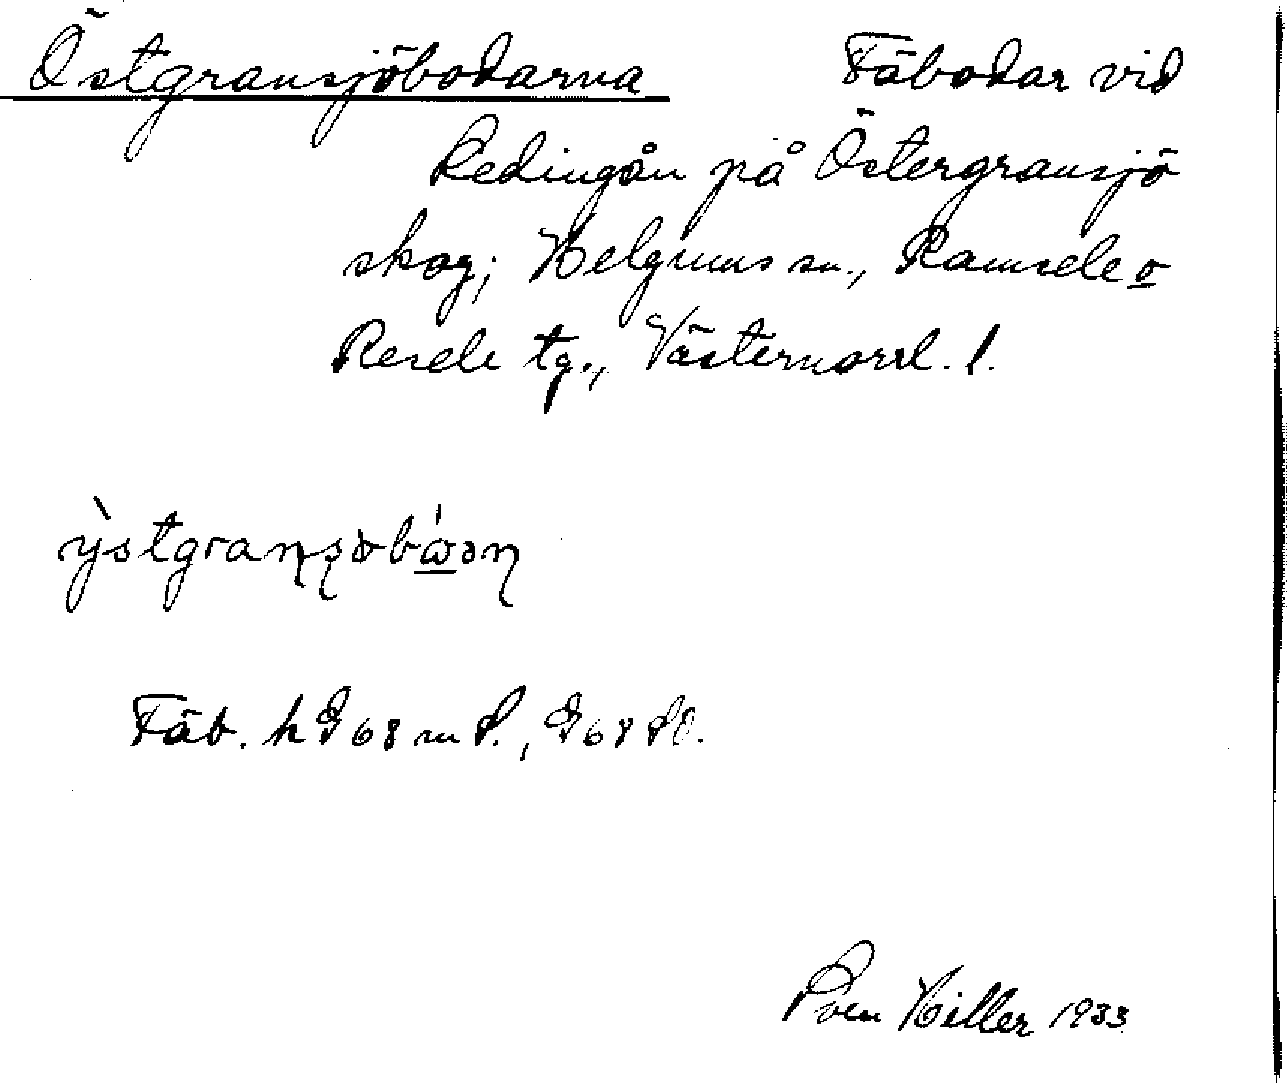 Östgransjöbodarna Fäbodar vid
Redingån på Östergransjö
skog; Helgums sn., Ramsele o
Resele tg., Västernorrl. l.
Fäb. h 968 m
Sven Hiller 1933